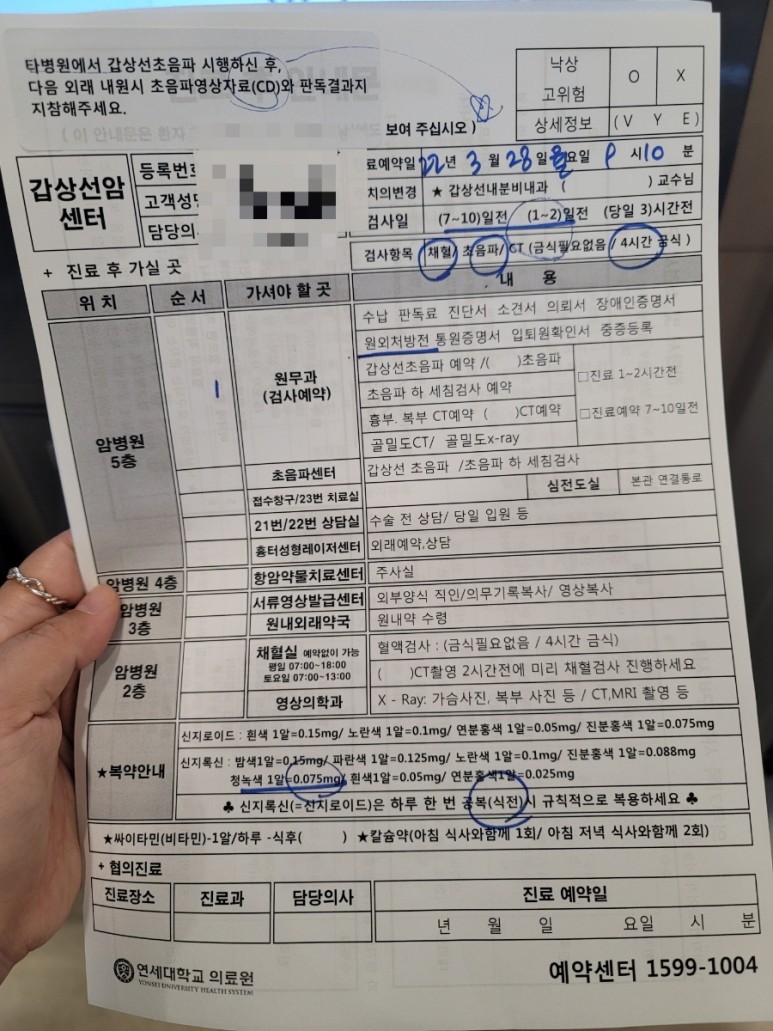 타병원에서 갑상선초음파 시행하신 후,
다음 외래 내원시 초음파영상자료(CD)와 판독결과지
지참해주세요.
( 이 안내문은 환자
보여 주십시오 )
낙상
고위험
O X
상세정보 ( V Y E )
갑상선암
센터
등록번호
고객성명
담당의
료예약일 22년 3월 28일 월요일 9시 10분
치의변경 ★ 갑상선내분비내과 ( ) 교수님
검사일 (7~10)일전 (1~2)일전 (당일 3)시간전
검사항목 채혈/ 초음파/ CT (금식필요없음 / 4시간 금식 )
+ 진료 후 가실 곳
위 치 순 서 가셔야 할 곳 내 용
암병원
5층
1
원무과
(검사예약)
수납 판독료 진단서 소견서 의뢰서 장애인증명서
원외처방전 통원증명서 입퇴원확인서 중증등록
갑상선초음파 예약 /( )초음파
초음파 하 세침검사 예약
흉부. 복부 CT예약 ( )CT예약
골밀도CT/ 골밀도x-ray
□진료 1~2시간전
□진료예약 7~10일전
초음파센터 갑상선 초음파 /초음파 하 세침검사
접수창구/23번 치료실 심전도실 본관 연결통로
21번/22번 상담실 수술 전 상담/ 당일 입원 등
흉터성형레이저센터 외래예약,상담
암병원 4층 항암약물치료센터 주사실
암병원
3층
서류영상발급센터 외부양식 직인/의무기록복사/ 영상복사
원내외래약국 원내약 수령
암병원
2층
채혈실 예약없이 가능
평일 07:00~18:00
토요일 07:00~13:00
혈액검사 : (금식필요없음 / 4시간 금식)
( )CT촬영 2시간전에 미리 채혈검사 진행하세요
영상의학과 X - Ray: 가슴사진, 복부 사진 등 / CT,MRI 촬영 등
★복약안내
신지로이드 : 흰색 1알=0.15mg/ 노란색 1알=0.1mg/ 연분홍색 1알=0.05mg/ 진분홍색 1알=0.075mg
신지록신 : 밤색1알=0.15mg/ 파란색 1알=0.125mg/ 노란색 1알=0.1mg/ 진분홍색 1알=0.088mg
청녹색 1알=0.075mg/ 흰색1알=0.05mg/ 연분홍색1알=0.025mg
♣ 신지록신(=신지로이드)은 하루 한 번 공복(식전)시 규칙적으로 복용하세요 ♣
★싸이타민(비타민)-1알/하루 -식후( ) ★칼슘약(아침 식사와함께 1회/ 아침 저녁 식사와함께 2회)
+ 협의진료
진료장소 진료과 담당의사 진료 예약일
년 월 일 요일 시 분
연세대학교 의료원
YONSEI UNIVERSITY HEALTH SYSTEM
예약센터 1599-1004